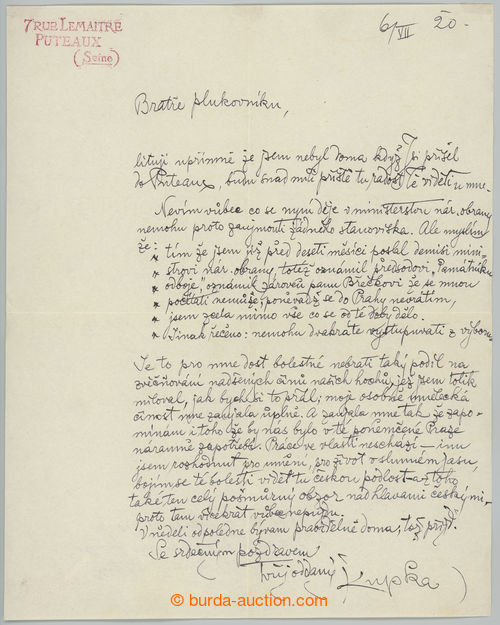 7 RUE LEMAITRE
PUTEAUX
(Seine)
6/VII 20.-
Bratře plukovníku,
lituji upřímně že jsem nebyl doma když Jsi přišel
do Puteaux, budu snad míti příště tu radost Tě viděti u mne.
Nevím vůbec co se nyní děje v ministerstvu nár. obrany
nemohu proto zaujmouti žádného stanoviska. Ale myslím
že: tím že jsem již před desíti měsíci poslal demisi mini-
strovi nár. obrany, totéž oznámil předsedovi „Památníku
odboje", oznámil zároveň panu Břečkovi že se mnou
počítati nemůže, poněvadž se do Prahy nevrátím,
jsem zcela mimo vše co se od té doby dělo.
Jinak řečeno: nemohu dvakráte vystupovati z výboru
Je to pro mne dost bolestné nebrati taký podíl na
zvěčňování nadšených činů našich hochů, jež jsem tolik
miloval, jak bych si to přál; moje osobní umělecká
činost mne zaujala úplně. A zaujala mne tak že zapo-
mínám i toho že by nás bylo v té poněmčené Praze
náramně zapotřebí. Práce ve vlasti neschází – inu
jsem rozhodnut pro umění, pro život v slunném jasu,
bojím se té bolesti vidět tu českou podlost – a z toho
také ten celý pošmúrný obzor nad hlavami českými –
proto tam vícekrát vůbec nepůjdu.
V neděli odpoledne bývám pravidelně doma, tož přijď.
Se srdečným pozdravem
Tvůj oddaný Kupka
© burda-auction.com